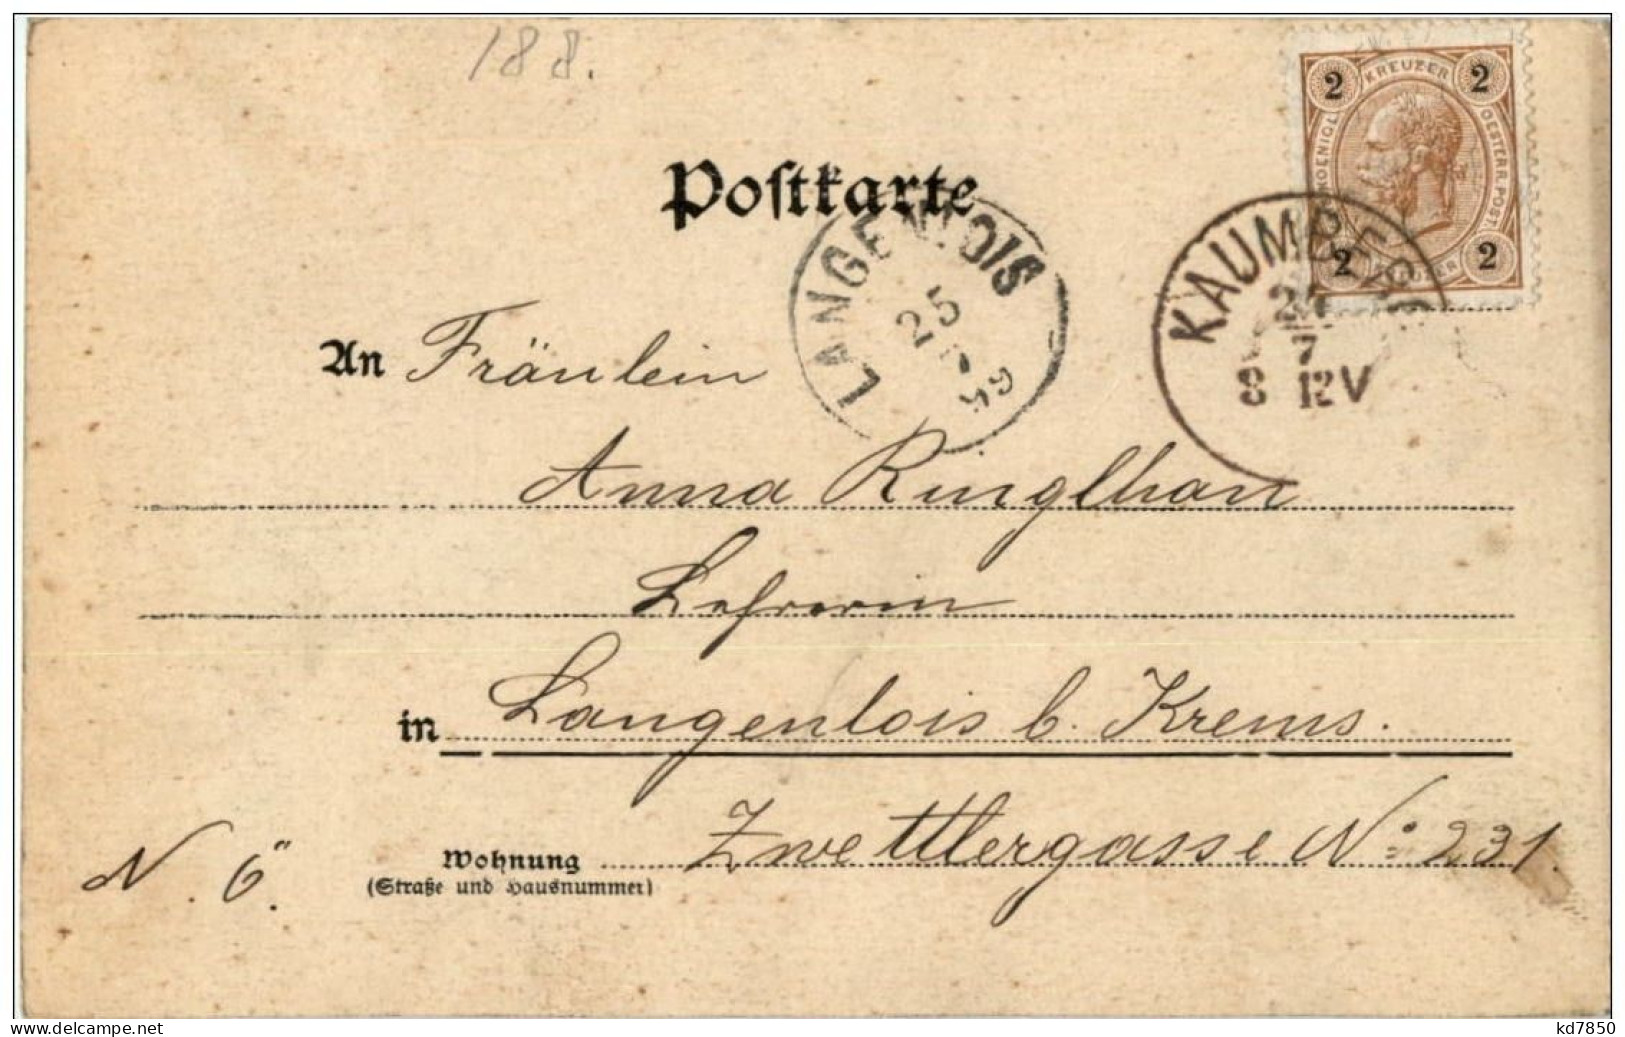 188.
Postkarte
2 KREUZER 2
KOENIGL. OESTERR. POST
2 2
LANGENLOIS
25
7
99
KAUMBERG
7
8 12V
An Fräulein
Anna Ringlhan
Lehrerin
in Langenlois b. Krems.
Wohnung Zwettlergasse No: 231.
(Straße und Hausnummer)
N. 6.
www.delcampe.net
kd7850